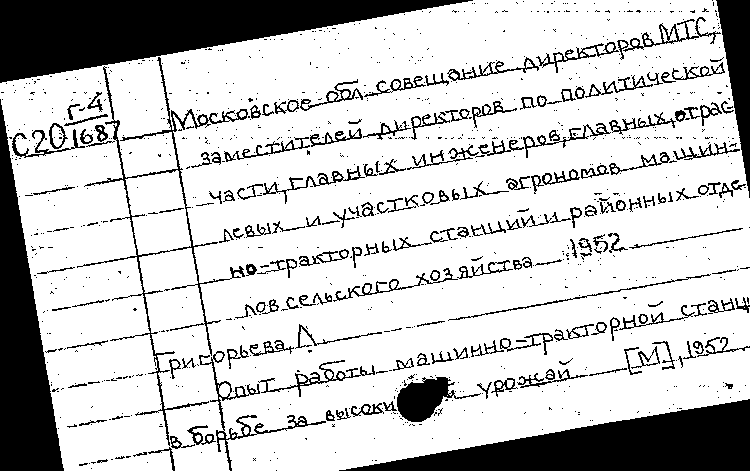 Г-4
С20 1687
Московское обл. совещание директоров МТС,
заместителей директоров по политической
части, главных инженеров, главных, отрас
левых и участковых агрономов машин-
но-тракторных станций и районных отде-
лов сельского хозяйства 1952.
Григорьева, Л.
Опыт работы машинно-тракторной станц
в борьбе за высоки урожай [М], 1952